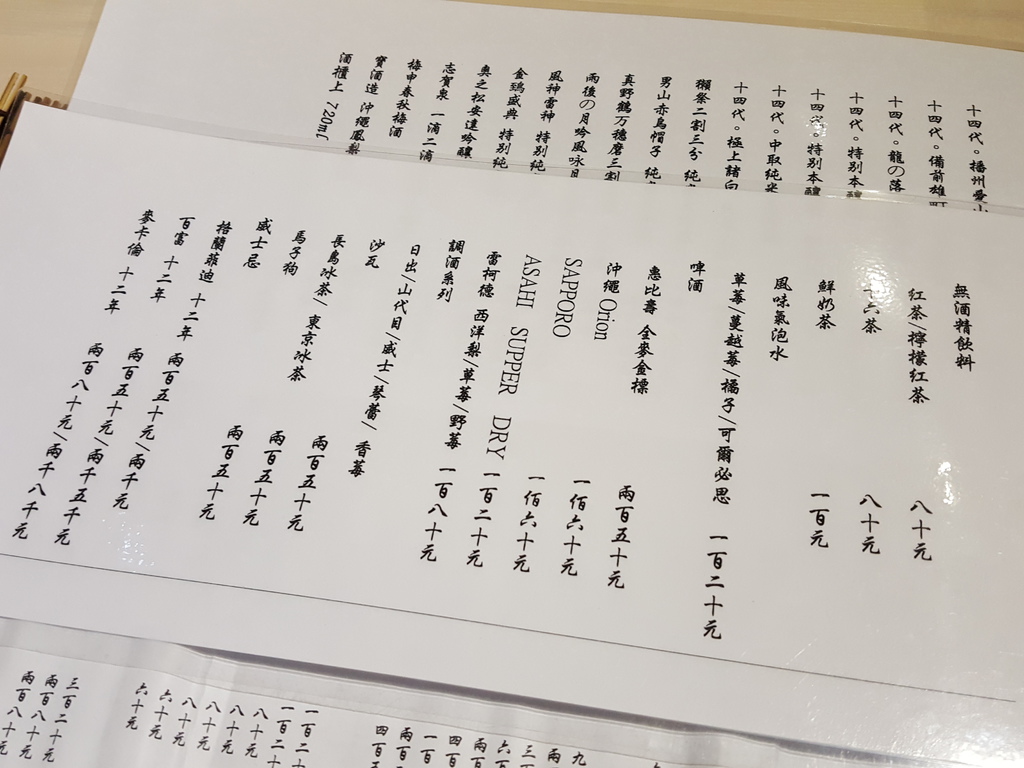 十四代。播州愛山
十四代。備前雄町
十四代。龍の落
十四代。特別本醸
十四代。特別本醸
十四代。中取純米
十四代。極上諸白
獺祭二割三分
男山赤烏帽子
真野鶴万穗磨三割
雨後の月吟風咏月
風神雷神 特別純
金鵄盛典 特別純
奧之松安達吟釀
志賀泉 一滴二滴
梅申春秋梅酒
寶酒造 沖繩鳳梨
酒櫃上 720ml
無酒精飲料
紅茶/檸檬紅茶 八十元
十六茶 八十元
鮮奶茶 一百元
風味氣泡水
草莓/蔓越莓/橘子/可爾必思 一百二十元
啤酒
惠比壽 全麥金標 兩百五十元
沖繩 Orion 一佰六十元
SAPPORO 一佰六十元
ASAHI SUPPER DRY 一百二十元
雷柯德 西洋梨/草莓/野莓 一百八十元
調酒系列
日出/山代目/威士/琴蕾/香莓
沙瓦
長島冰茶/東京冰茶 兩百五十元
馬子狗 兩百五十元
威士忌 兩百五十元
格蘭菲迪 十二年 兩百五十元/兩千元
百富 十二年 兩百五十元/兩千五千元
麥卡倫 十二年 兩百八十元/兩千八千元
一百二十
一百二十
八十元
八十元
八十元
八十元
六十元
六十元
三百二十元
兩百八十元
兩百八十元